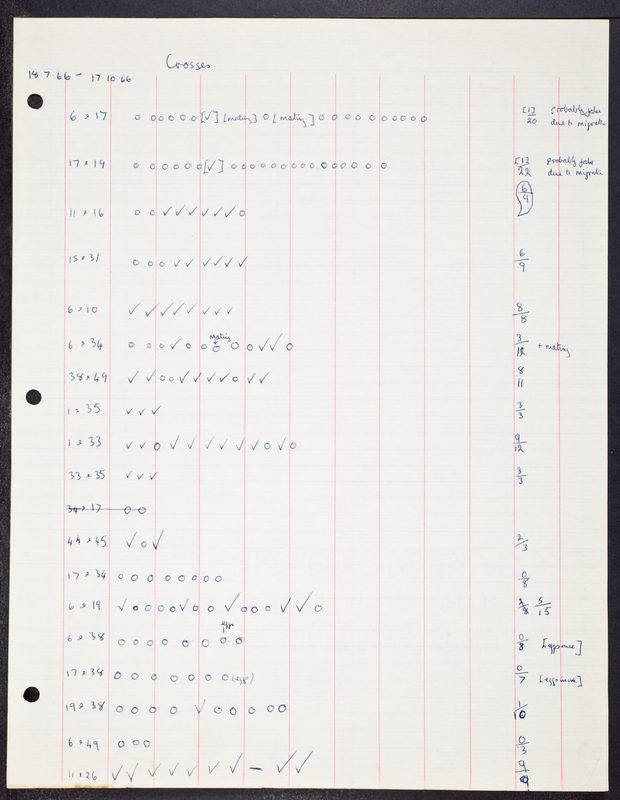 Crosses.
18.7.66 - 17.10.66
6 × 17 o o o o o o [✓] [mating] o [mating] o o o o o o o o o o [1]/20 probably false due to migration
17 × 19 o o o o o o [✓] o o o o o o o o o o o o o o o [1]/22 probably false due to migration
6/9
11 × 16 o o ✓ ✓ ✓ ✓ ✓ ✓ o
15 × 31 o o o ✓ ✓ ✓ ✓ ✓ ✓ 6/9
6 × 10 ✓ ✓ ✓ ✓ ✓ ✓ ✓ ✓ 8/8
mating
6 × 34 o o o ✓ o o o o o ✓ ✓ o 3/12 + mating
38 × 49 ✓ ✓ o o ✓ ✓ ✓ ✓ o ✓ ✓ 8/11
1 × 35 ✓ ✓ ✓ 3/3
1 × 33 ✓ ✓ o ✓ ✓ ✓ ✓ ✓ ✓ o ✓ o 9/12
33 × 35 ✓ ✓ ✓ 3/3
34 × 17 o o
44 × 45 ✓ o ✓ 2/3
17 × 34 o o o o o o o o 0/8
6 × 19 ✓ o o o o ✓ o o ✓ o o o ✓ ✓ o 5/15
eggs
6 × 38 o o o o o o o o 0/8 [eggs once]
17 × 38 o o o o o o o (eggs) 0/7 [eggs once]
19 × 38 o o o o ✓ o o o o o 1/10
6 × 49 o o o 0/3
11 × 26 ✓ ✓ ✓ ✓ ✓ ✓ ✓ — ✓ ✓ 9/9